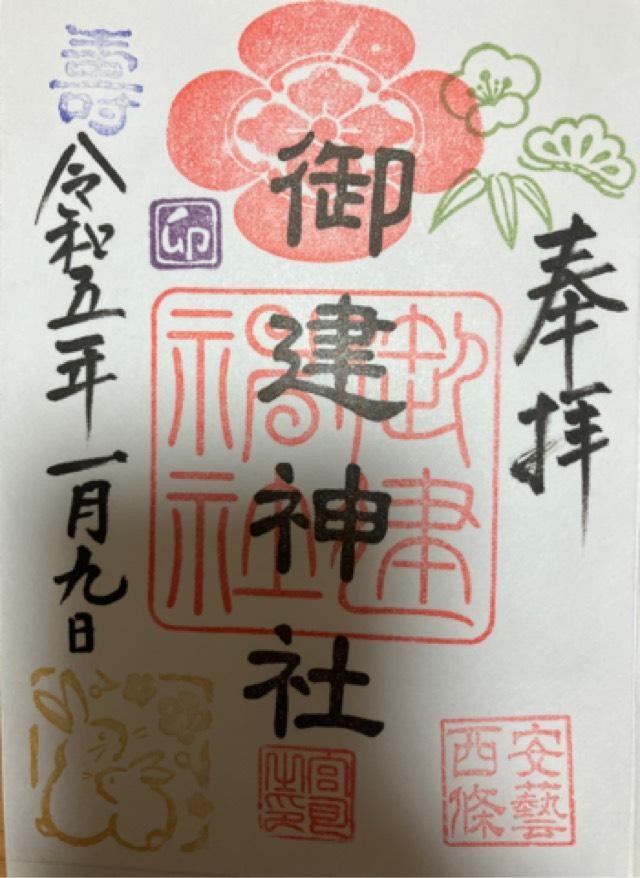 奉拝
安藝
西條
御建神社
御建
神社
宮司
之印
卯
壽
令和五年一月九日